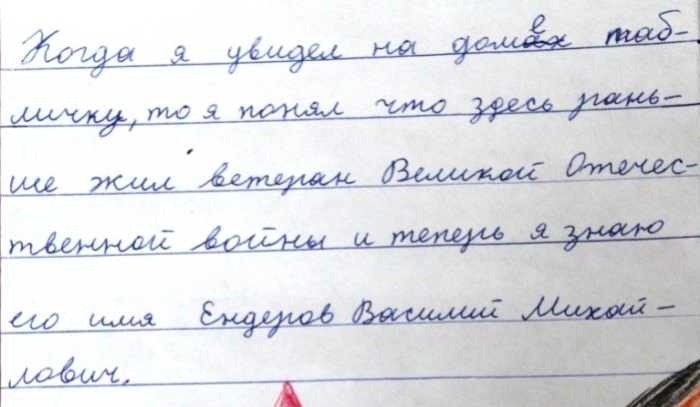 Когда я увидел на доме таб-
личку, то я понял что здесь рань-
ше жил ветеран Великой Отечес-
твенной войны и теперь я знаю
его имя Ендеров Василий Михай-
лович.